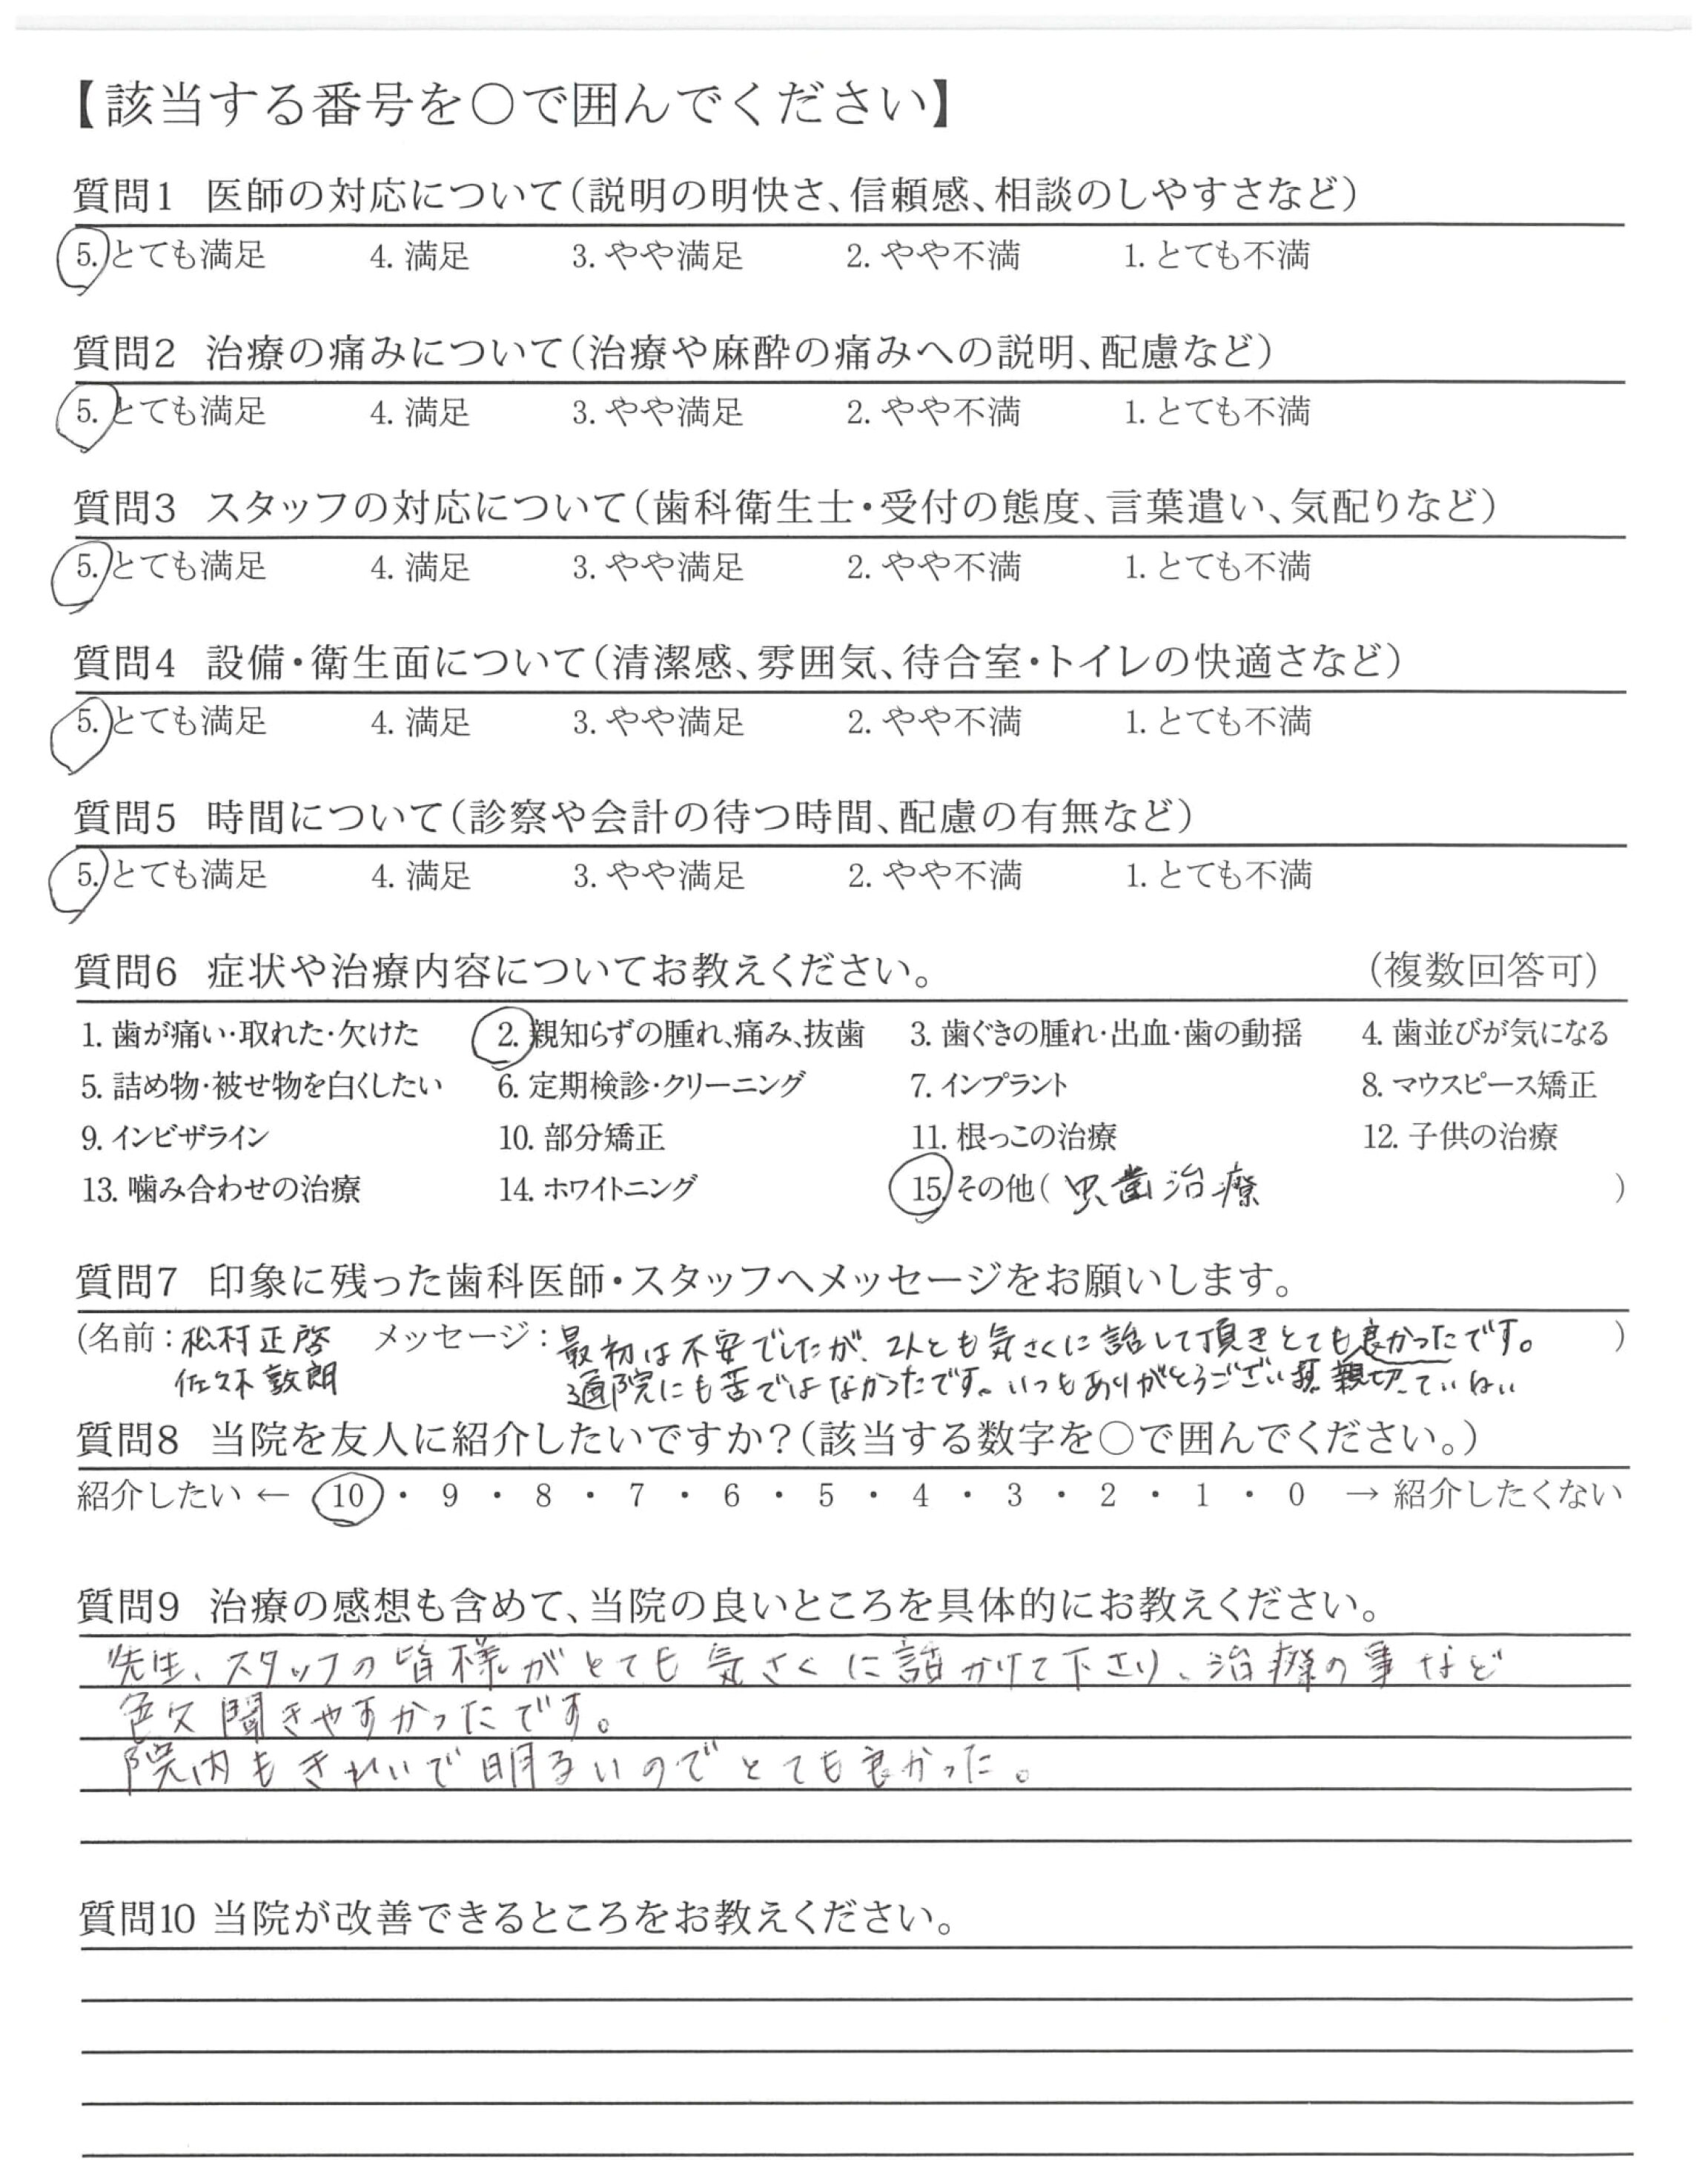 【該当する番号を○で囲んでください】
質問1 医師の対応について(説明の明快さ、信頼感、相談のしやすさなど)
5. とても満足 4. 満足 3. やや満足 2. やや不満 1. とても不満
質問2 治療の痛みについて(治療や麻酔の痛みへの説明、配慮など)
5. とても満足 4. 満足 3. やや満足 2. やや不満 1. とても不満
質問3 スタッフの対応について(歯科衛生士・受付の態度、言葉遣い、気配りなど)
5. とても満足 4. 満足 3. やや満足 2. やや不満 1. とても不満
質問4 設備・衛生面について(清潔感、雰囲気、待合室・トイレの快適さなど)
5. とても満足 4. 満足 3. やや満足 2. やや不満 1. とても不満
質問5 時間について(診察や会計の待つ時間、配慮の有無など)
5. とても満足 4. 満足 3. やや満足 2. やや不満 1. とても不満
質問6 症状や治療内容についてお教えください。 (複数回答可)
1. 歯が痛い・取れた・欠けた 2. 親知らずの腫れ、痛み、抜歯 3. 歯ぐきの腫れ・出血・歯の動揺 4. 歯並びが気になる
5. 詰め物・被せ物を白くしたい 6. 定期検診・クリーニング 7. インプラント 8. マウスピース矯正
9. インビザライン 10. 部分矯正 11. 根っこの治療 12. 子供の治療
13. 噛み合わせの治療 14. ホワイトニング 15. その他( 虫歯治療 )
質問7 印象に残った歯科医師・スタッフへメッセージをお願いします。
(名前:松村正啓 メッセージ:最初は不安でしたが、2人とも気さくに話して頂きとても良かったです。 )
佐々木敦朗 通院にも苦ではなかったです。いつもありがとうございます。親切ていねい
質問8 当院を友人に紹介したいですか?(該当する数字を○で囲んでください。)
紹介したい ← 10 ・ 9 ・ 8 ・ 7 ・ 6 ・ 5 ・ 4 ・ 3 ・ 2 ・ 1 ・ 0 → 紹介したくない
質問9 治療の感想も含めて、当院の良いところを具体的にお教えください。
先生、スタッフの皆様がとても気さくに話かけて下さり、治療の事など
色々聞きやすかったです。
院内もきれいで明るいのでとても良かった。
質問10 当院が改善できるところをお教えください。